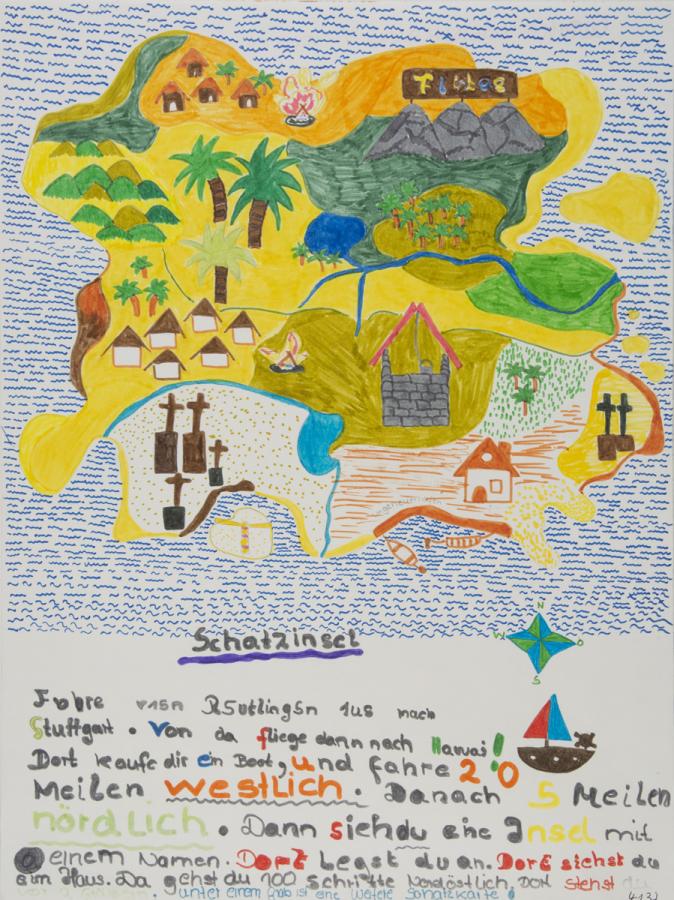 N
W O
S
Schatzinsel
Fahre von Reutlingen aus nach
Stuttgart. Von da fliege dann nach Hawai!
Dort kaufe dir ein Boot, und fahre 20
Meilen westlich. Danach 5 Meilen
nördlich. Dann siehdu eine Insel mit
einem Namen. Dort legst du an. Dort siehst du
ein Haus. Da gehst du 100 schritte Nordöstlich, DOR stehst du
. unter einem Grab ist eine weitere Schatzkarte